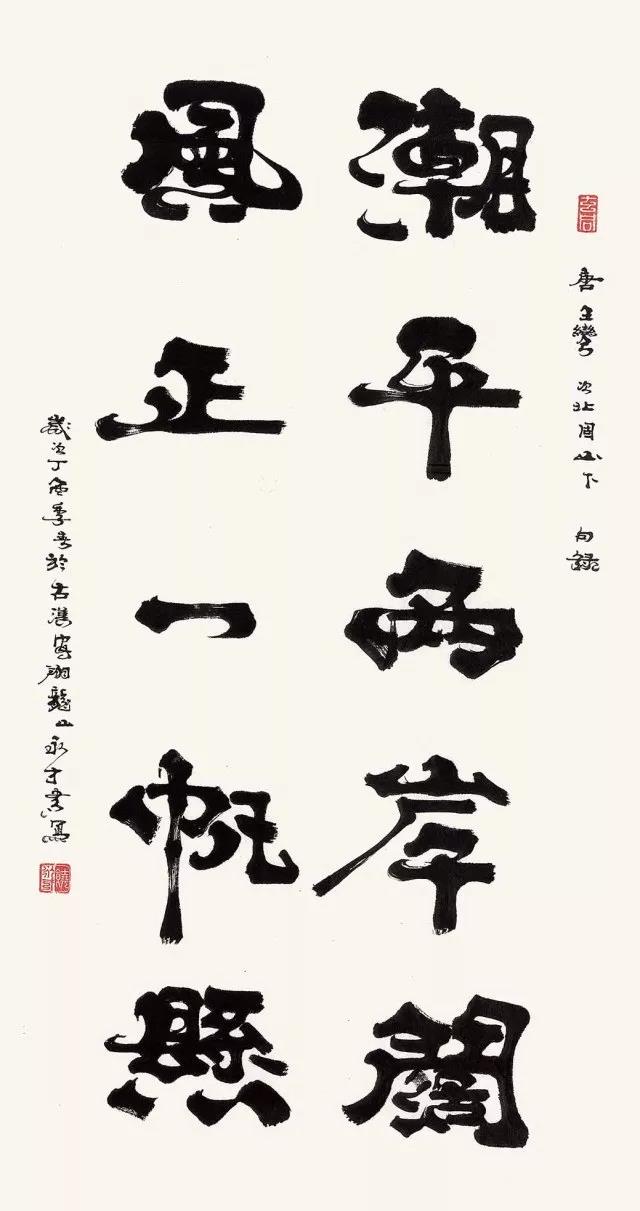 唐王灣次北固山下句錄
潮平兩岸闊
風正一帆懸
歲次丁酉季春於古漢寓翔龍山永才書寫